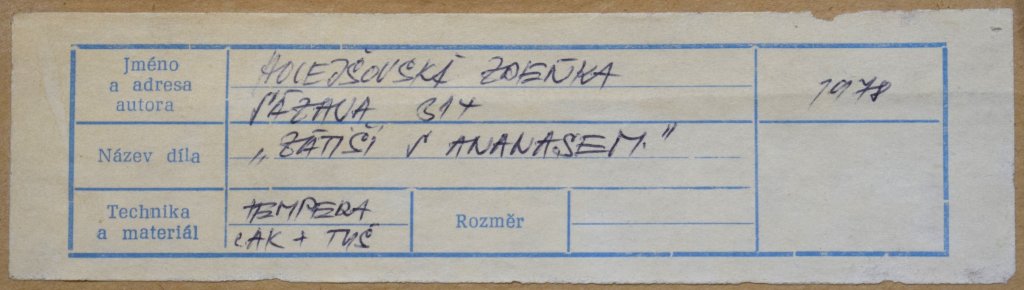 Jméno
a adresa
autora
HOLEJŠOVSKÁ ZDEŇKA
SÁZAVA 314
1978
Název díla
„ZÁTIŠÍ S ANANASEM."
Technika
a materiál
TEMPERA
LAK + TUŠ
Rozměr